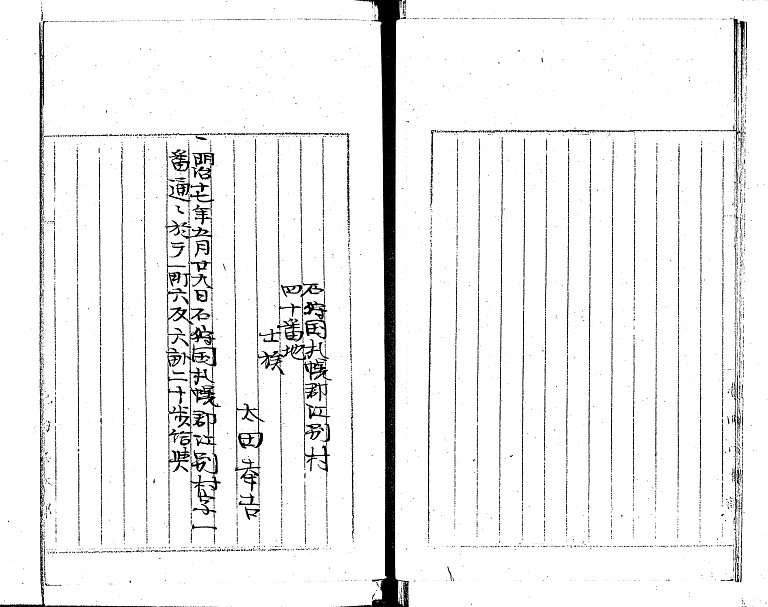 石狩国札幌郡江別村
四十番地
士族
太田幸吉
一明治十七年五月廿九日石狩国札幌郡江別村字一
番通ニ於テ一町六反六畝二十歩給与